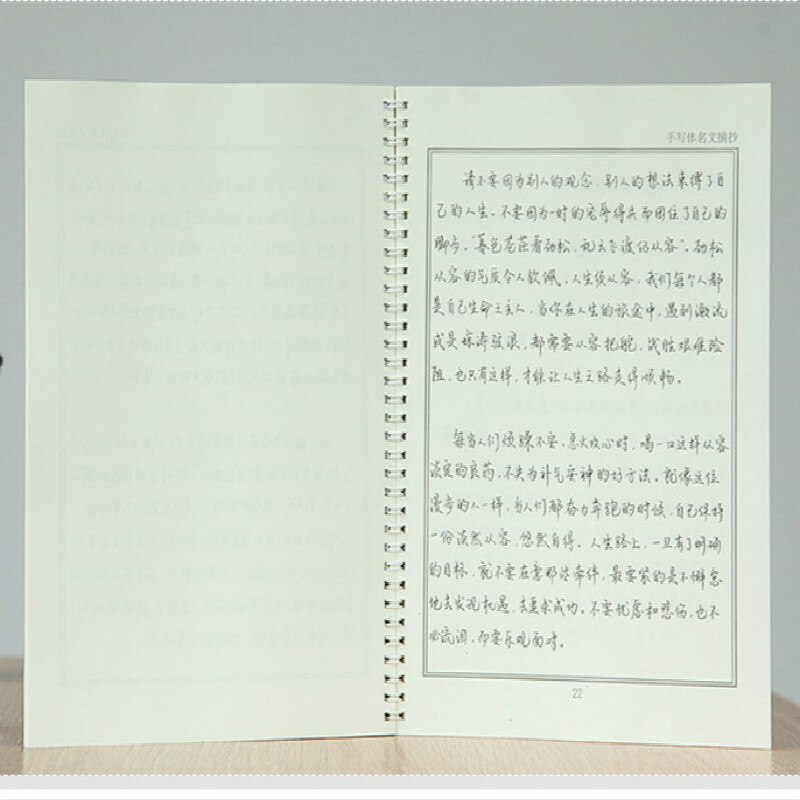 手写体名文摘抄
请不要因为别人的观念，别人的想法束缚了自
己的人生。不要因为一时的宠辱得失而困住了自己的
脚步。“暮色苍茫看劲松，乱云飞渡仍从容”。劲松
从容的气质令人钦佩，人生须从容，我们每个人都
是自己生命之主人，当你在人生的旅途中，遇到激流
或是惊涛骇浪，都需要从容把舵，战胜艰难险
阻，也只有这样，才能让人生之路走得顺畅。
每当人们烦躁不安，急火攻心时，喝一口这样从容
淡定的良药，不失为补气安神的好方法。就像这位
漫步的人一样，当人们都奋力奔跑的时候，自己保持
一份淡然从容，悠然自得。人生路上，一旦有了明确
的目标，就不要在意那些牵绊，最要紧的是不懈怠
地去发现机遇，去谋求成功。不要忧虑和悲伤，也不
必流泪，而要乐观面对。
22